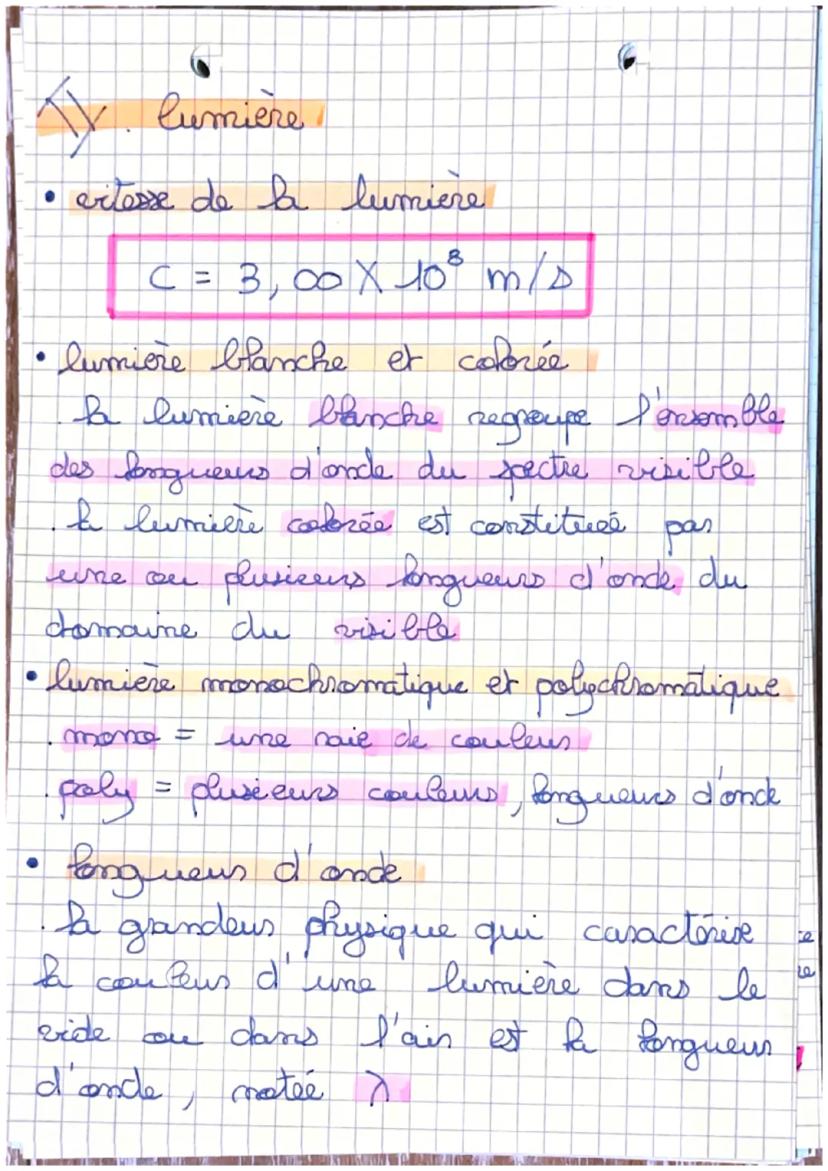 I/. lumière
• vitesse de la lumière
C = 3,00 X 10⁸ m/s
• lumière blanche et colorée
. la lumière blanche regroupe l'ensemble
des longueurs d'onde du spectre visible
. la lumière colorée est constituée par
une ou plusieurs longueurs d'onde du
domaine du visible
• lumière monochromatique et polychromatique
. mono = une raie de couleur
. poly = plusieurs couleurs, longueurs d'onde
• longueur d'onde
. la grandeur physique qui caractérise
la couleur d'une lumière dans le
vide ou dans l'air est la longueur
d'onde, notée λ